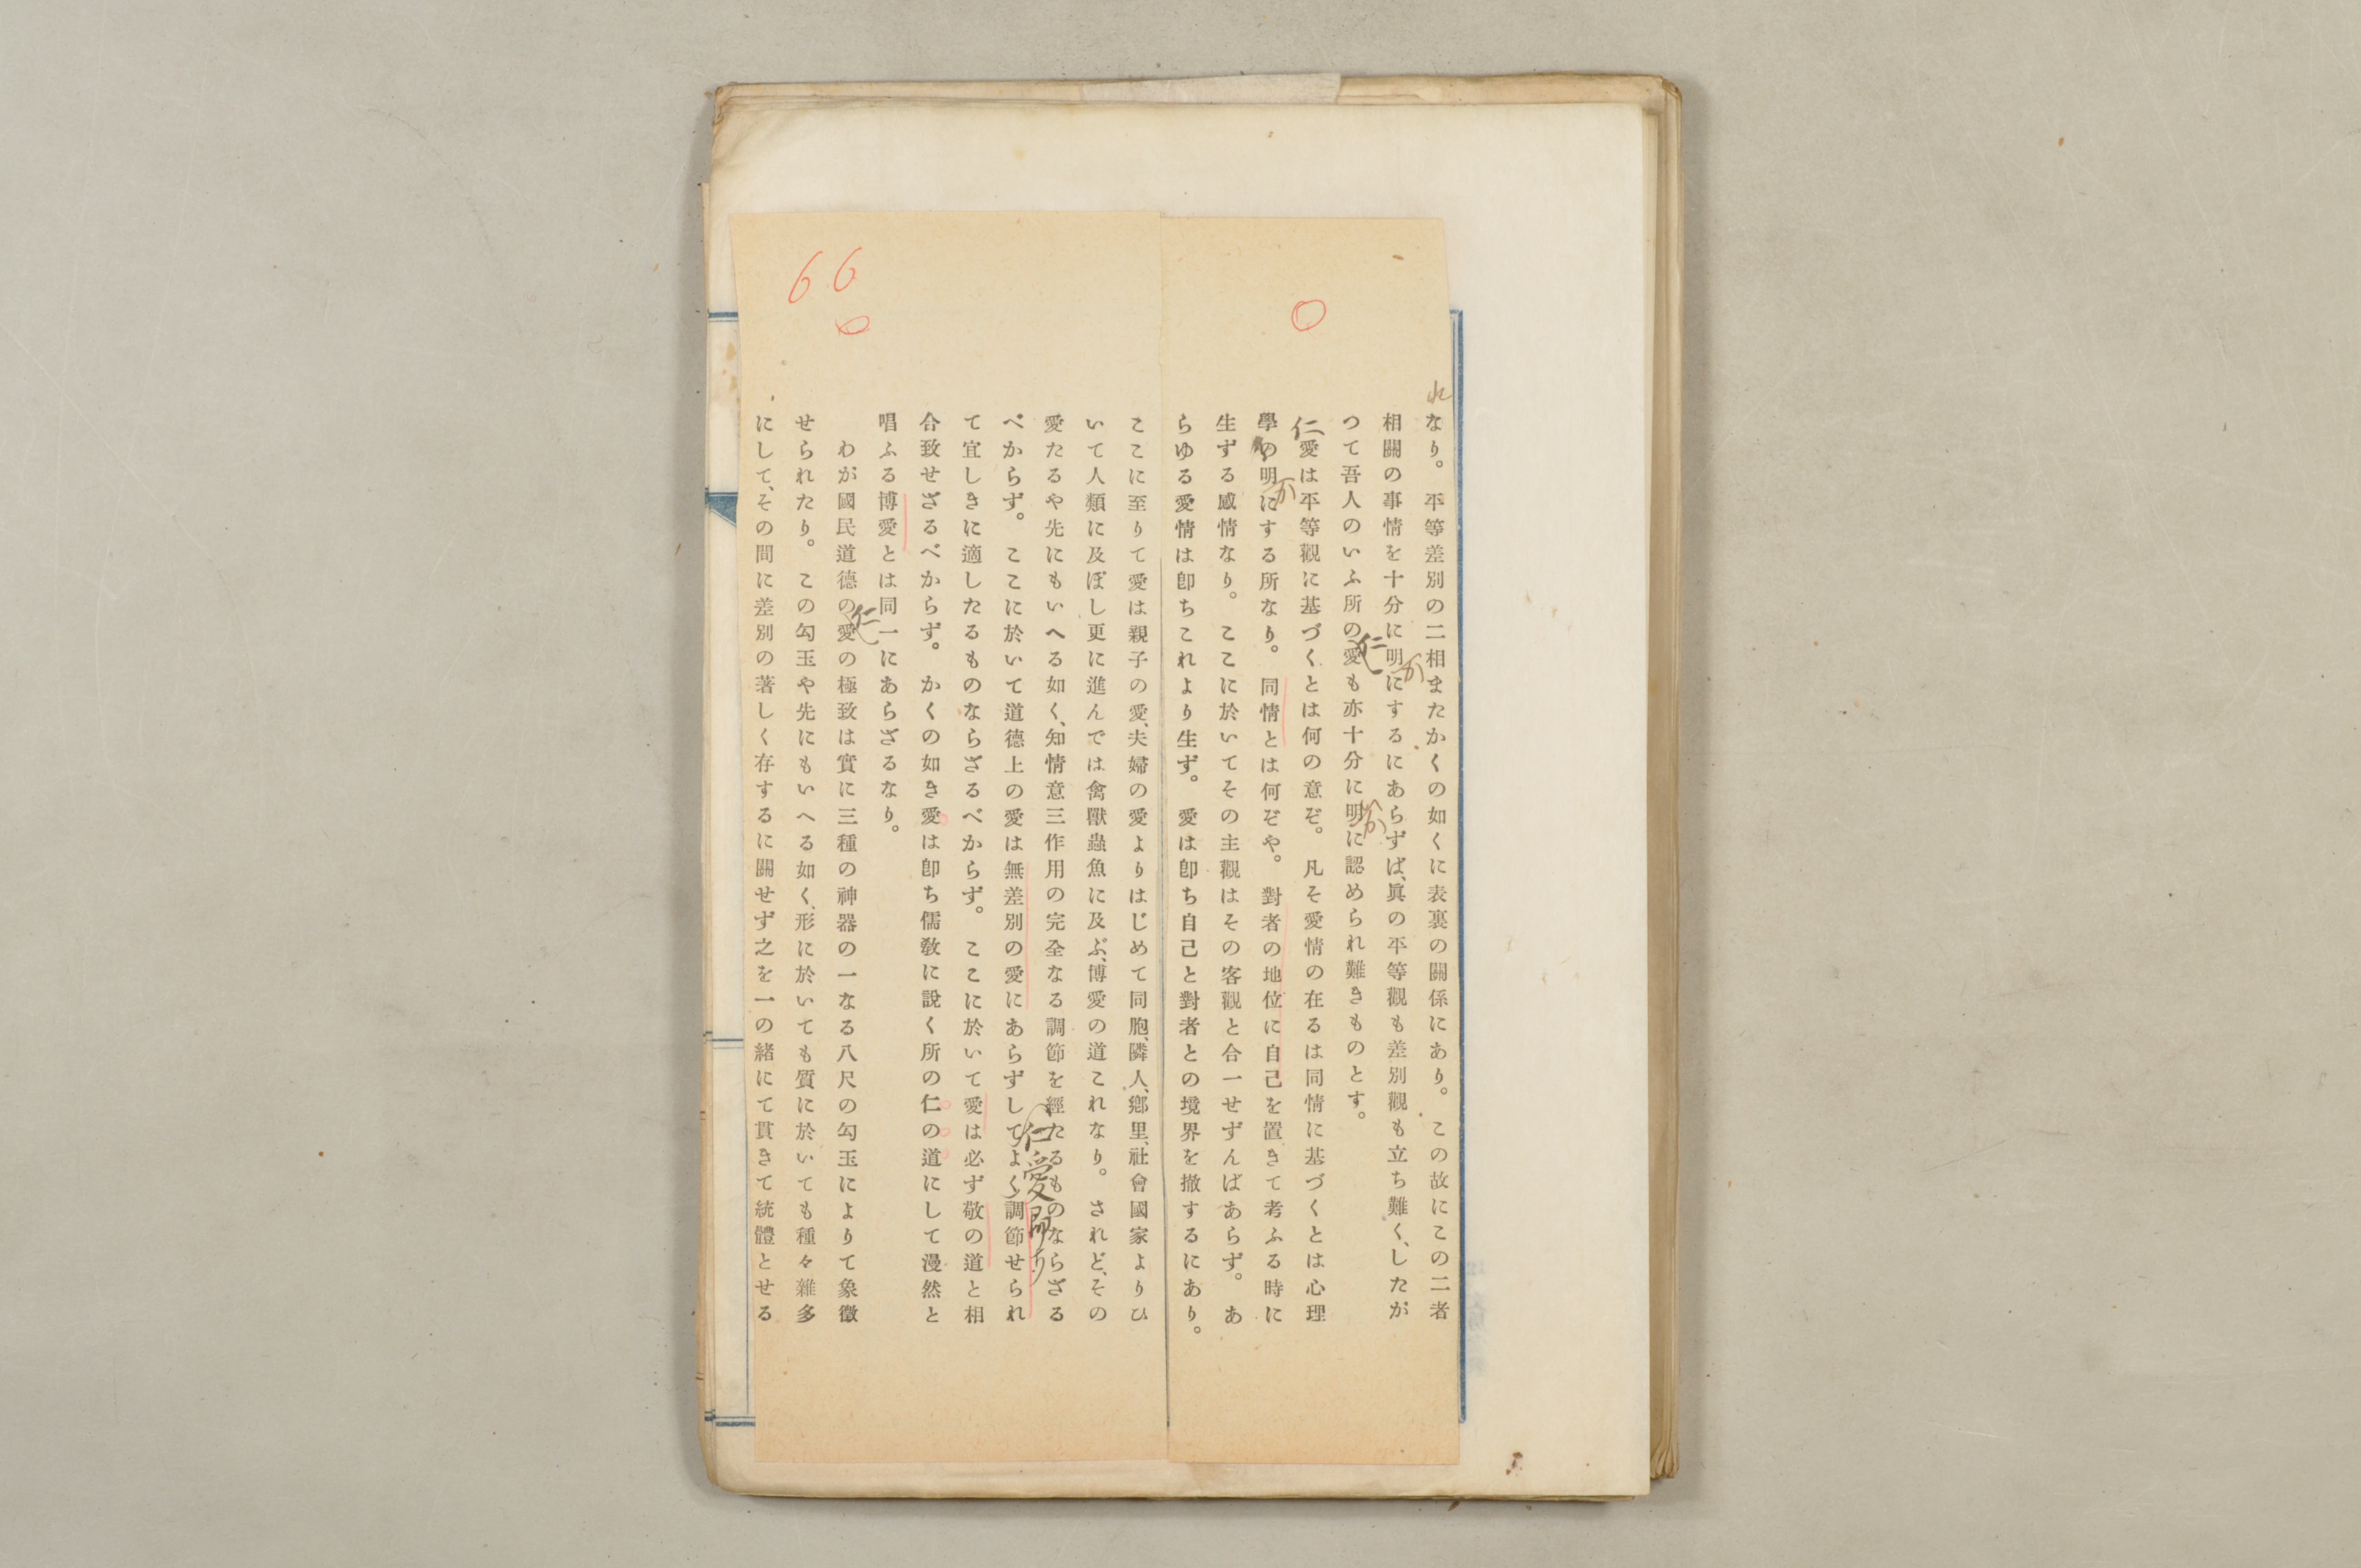 れ
なり。平等差別の二相またかくの如くに表裏の關係にあり。この故にこの二者
相關の事情を十分に明かにするにあらずば、眞の平等觀も差別觀も立ち難く、したが
つて吾人のいふ所の仁愛も亦十分に明かに認められ難きものとす。
仁愛は平等觀に基づくとは何の意ぞ。凡そ愛情の在るは同情に基づくとは心理
學の明かにする所なり。同情とは何ぞや。對者の地位に自己を置きて考ふる時に
生ずる感情なり。ここに於いてその主觀はその客觀と合一せずんばあらず。あ
らゆる愛情は卽ちこれより生ず。愛は卽ち自己と對者との境界を撤するにあり。
○
ここに至りて愛は親子の愛、夫婦の愛よりはじめて同胞、隣人、鄕里、社會國家よりひ
いて人類に及ぼし更に進んでは禽獸蟲魚に及ぶ、博愛の道これなり。されど、その
愛たるや先にもいへる如く、知情意三作用の完全なる調節を經たるものならざる
べからず。ここに於いて道德上の愛は無差別の愛にあらずしてよく調節せられ
仁愛即ち
て宜しきに適したるものならざるべからず。ここに於いて愛は必ず敬の道と相
合致せざるべからず。かくの如き愛は卽ち儒敎に說く所の仁の道にして漫然と
唱ふる博愛とは同一にあらざるなり。
わが國民道德の仁愛の極致は實に三種の神器の一なる八尺の勾玉によりて象徵
せられたり。この勾玉や先にもいへる如く、形に於いても質に於いても種々雜多
にして、その間に差別の著しく存するに關せず之を一の緖にて貫きて統體とせる
66
○